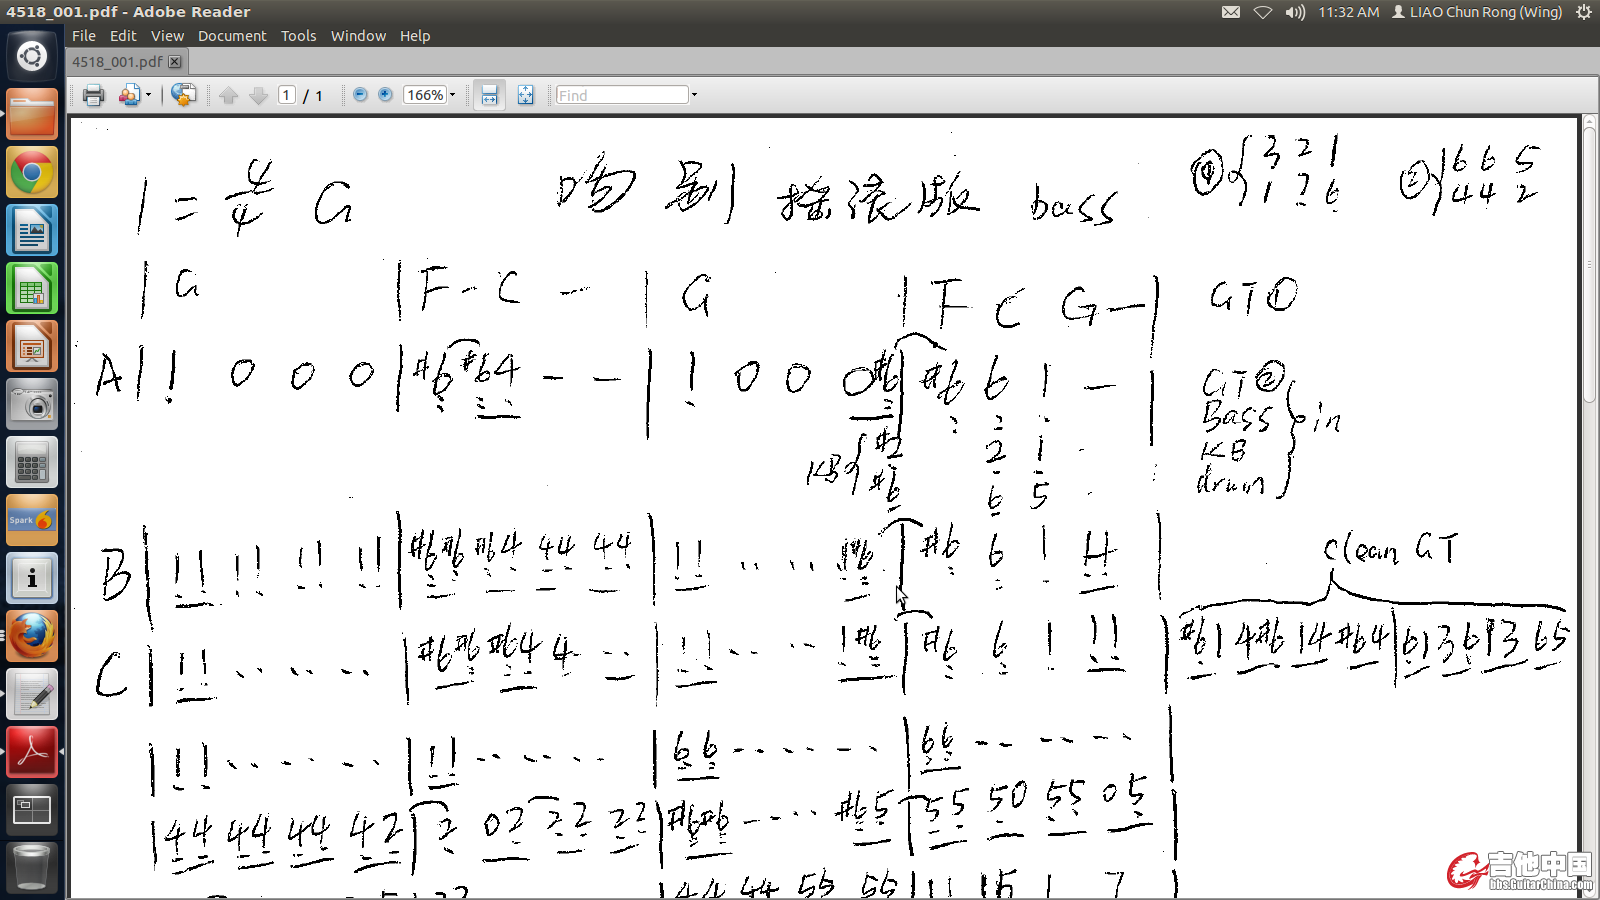 4518_001.pdf - Adobe Reader
11:32 AM LIAO Chun Rong (Wing)
File Edit View Document Tools Window Help
4518_001.pdf
1 / 1 166% Find
1 = 4/4 G 吻别 摇滚版 bass
① { 3 2 1
1 7 6
② { 6 6 5
4 4 2
| G | F - C - | G | F C G - | GT①
A | 1 0 0 0 | #6 #6 4 - - | 1 0 0 0 #6 | #6 6 1 - | GT②
Bass
KB
drum
in
KB { #2 2 1
#6 6 5
B | 11 11 11 11 | #6 #6 #6 4 44 44 | 11 .. .. 1 #6 | #6 6 1 11 |
clean GT
C | 11 .. .. .. | #6 #6 #6 4 4 .. | 11 .. .. 1 #6 | #6 6 1 11 | #6 1 4 #6 1 4 #6 4 | 6 1 3 6 1 3 6 5
| 11 .. .. .. | 11 .. .. .. | 66 .. .. .. | 66 .. .. .. |
| 44 44 44 42 | 2 02 22 22 | #6 #6 .. .. #6 5 | 55 50 55 05 |
44 44 55 55 | 11 15 1 7 |
Spark
吉他中国
bbs.GuitarChina.com